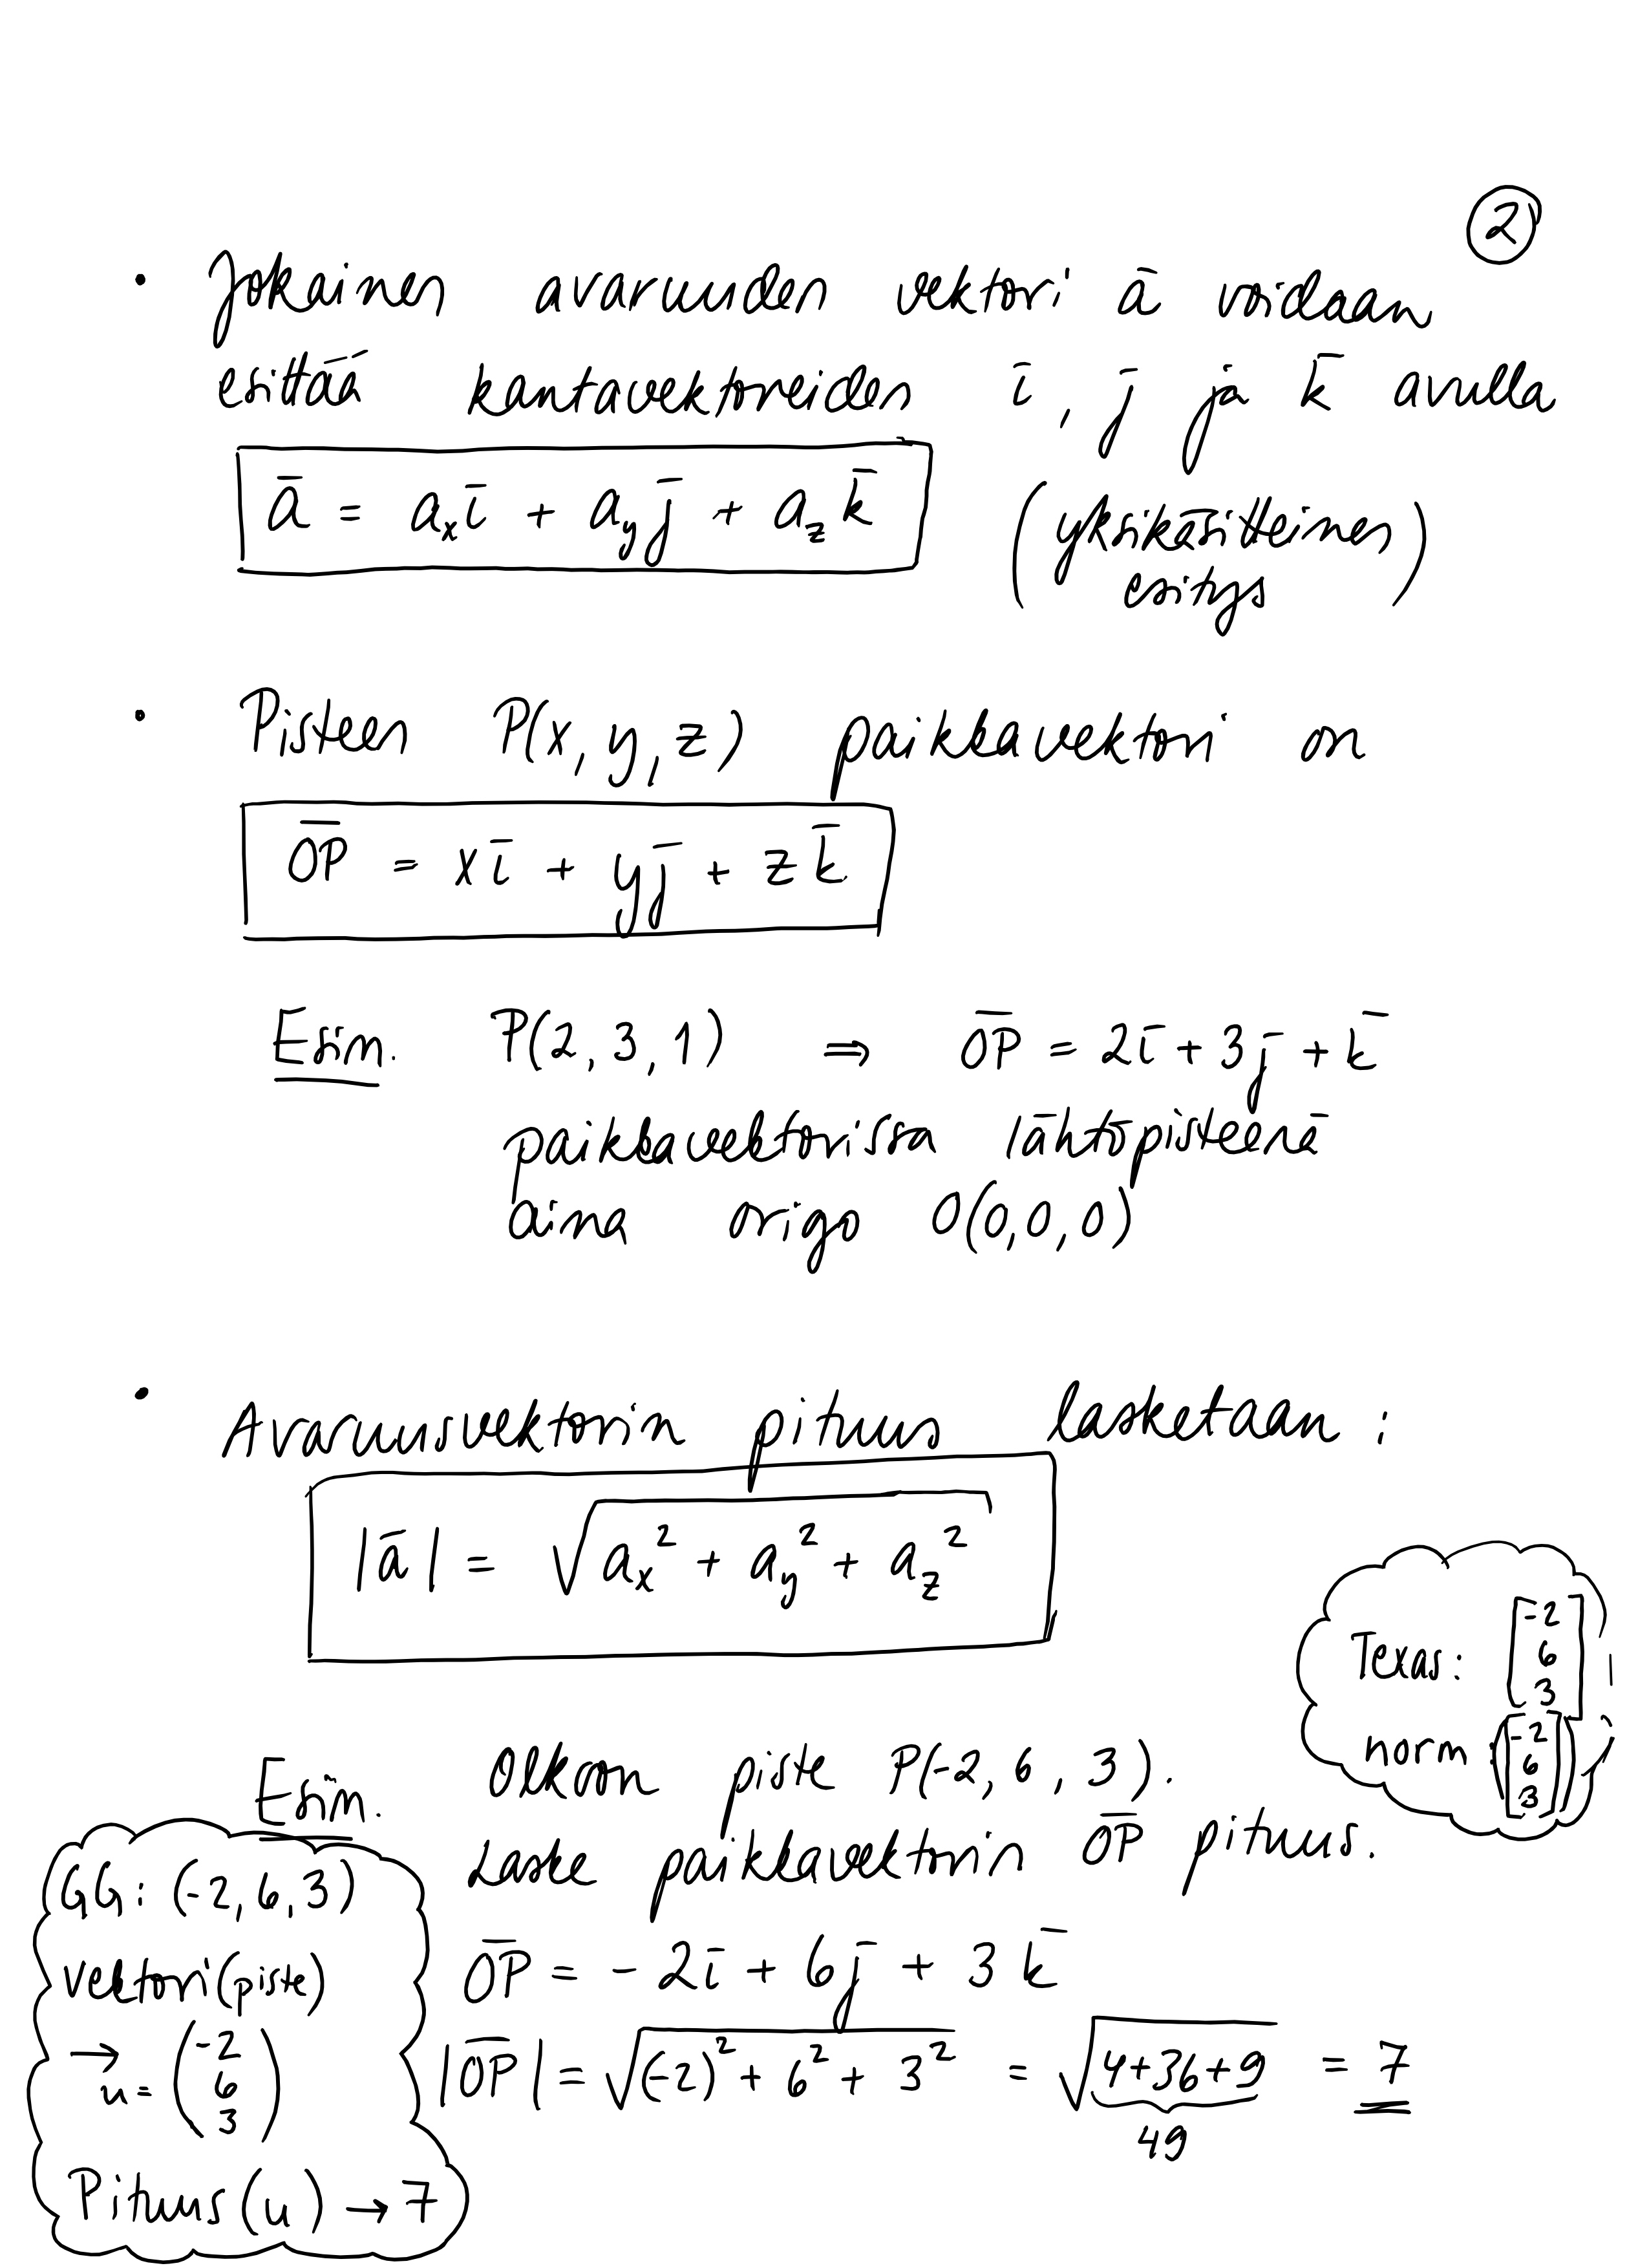 ②
• Jokainen avaruuden vektori ā voidaan
esittää kantavektoreiden ī, j̄ ja k̄ avulla
ā = aₓī + a_y j̄ + a_z k̄
(yksikäsitteinen
esitys)
• Pisteen P(x, y, z) paikkavektori on
O̅P̅ = xī + yj̄ + zk̄
Esim. P(2, 3, 1) ⇒ O̅P̅ = 2ī + 3j̄ + k̄
paikkavektorissa lähtöpisteenä
aina origo O(0, 0, 0)
• Avaruusvektorin pituus lasketaan :
|ā| = √(aₓ² + a_y² + a_z²)
Texas: [-2
6
3]
norm ([-2
6
3])
Esim. Olkoon piste P(-2, 6, 3).
Laske paikkavektorin O̅P̅ pituus.
O̅P̅ = -2ī + 6j̄ + 3k̄
|O̅P̅| = √((-2)² + 6² + 3²) = √(4+36+9) = 7
49
GG: (-2, 6, 3)
vektori(piste)
→ u = (-2
6
3)
Pituus(u) → 7